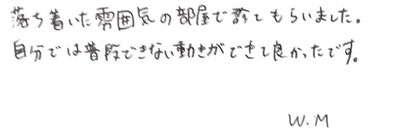 落ち着いた雰囲気の部屋で診てもらいました。
自分では普段できない動きができて良かったです。
W.M